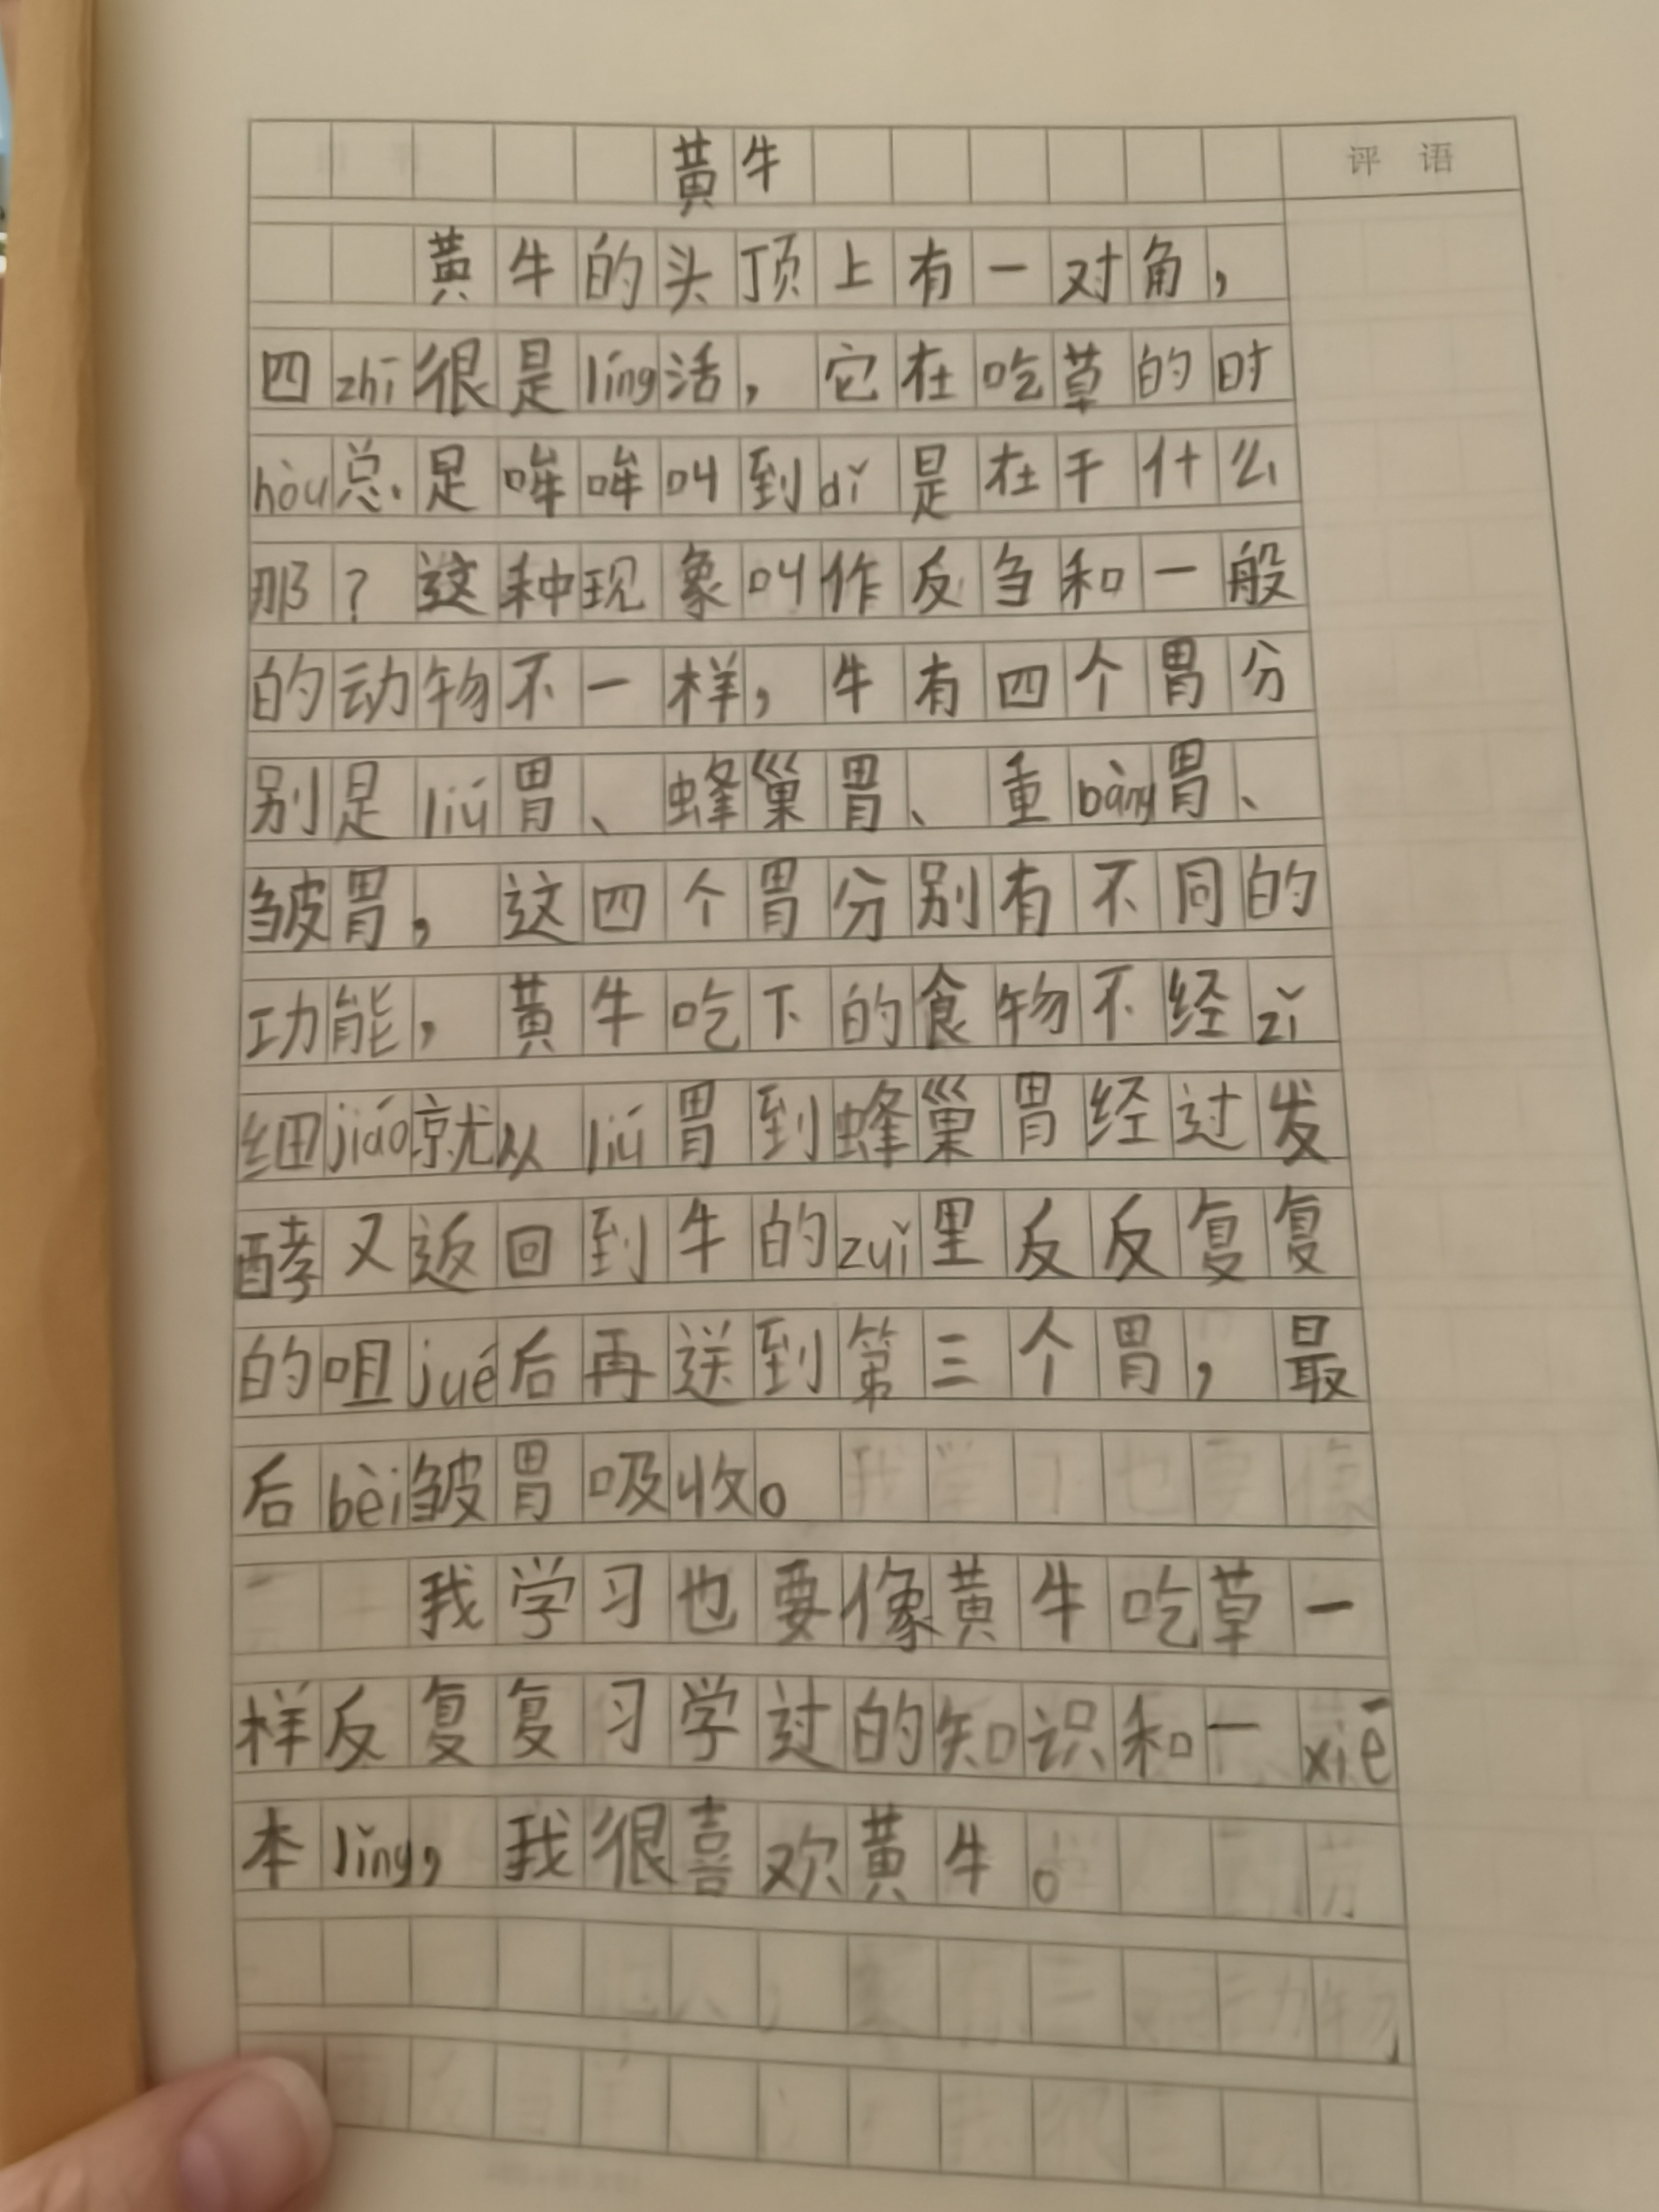 黄牛
评语
黄牛的头顶上有一对角，
四zhī很是líng活，它在吃草的时
hòu总是哞哞叫到dǐ是在干什么
那？这种现象叫作反刍和一般
的动物不一样，牛有四个胃分
别是liú胃、蜂巢胃、重bàng胃、
皱胃，这四个胃分别有不同的
功能，黄牛吃下的食物不经zǐ
细jiáo就从liú胃到蜂巢胃经过发
酵又返回到牛的zuǐ里反反复复
的咀jué后再送到第三个胃，最
后bèi皱胃吸收。
我学习也要像黄牛吃草一
样反复复习学过的知识和一xiē
本lǐng，我很喜欢黄牛。